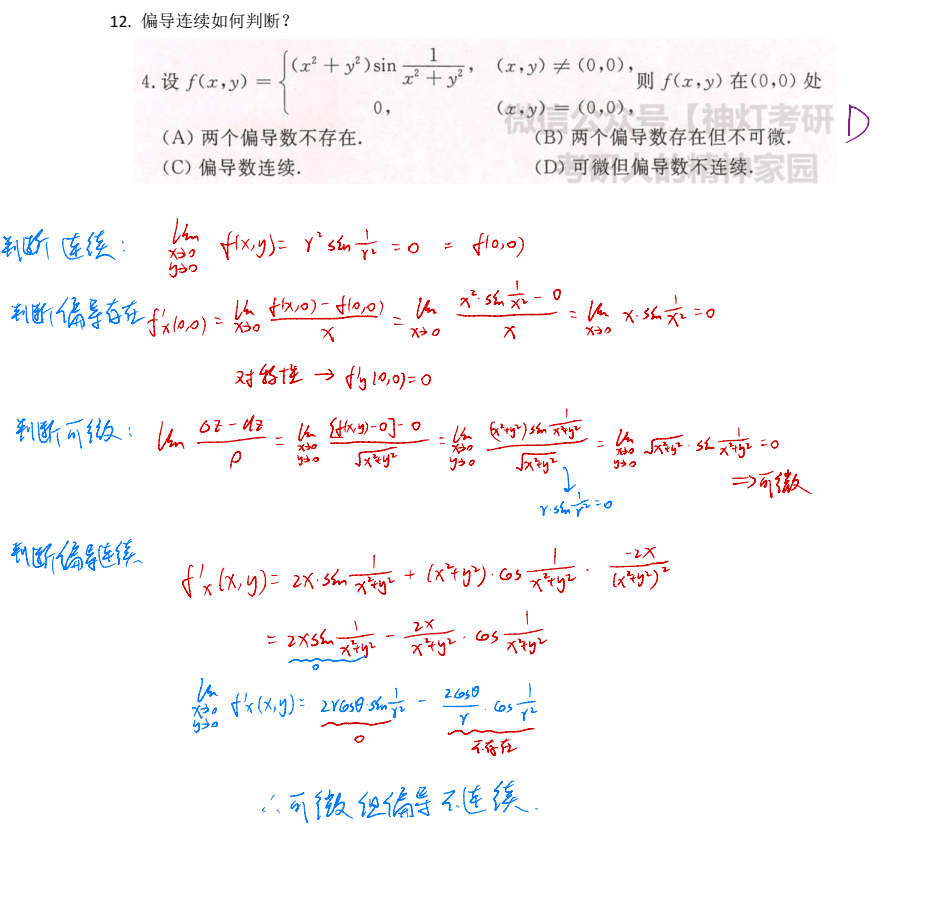 12. 偏导连续如何判断？
4. 设 f(x,y) = { (x² + y²)sin 1/(x² + y²), (x,y) ≠ (0,0), 0, (x,y) = (0,0), 则 f(x,y) 在(0,0) 处
(A) 两个偏导数不存在. (B) 两个偏导数存在但不可微.
(C) 偏导数连续. (D) 可微但偏导数不连续.
D
微信公众号【神灯考研
考研人的精神家园
判断 连续： lim x→0 y→0 f(x,y) = r² sin 1/r² = 0 = f(0,0)
判断偏导存在 f'x(0,0) = lim x→0 (f(x,0) - f(0,0))/x = lim x→0 (x²·sin 1/x² - 0)/x = lim x→0 x·sin 1/x² = 0
对称性 → f'y(0,0) = 0
判断可微： lim (Δz - dz)/ρ = lim x→0 y→0 ([f(x,y) - 0] - 0)/√(x²+y²) = lim x→0 y→0 ((x²+y²) sin 1/(x²+y²))/√(x²+y²) = lim x→0 y→0 √(x²+y²) · sin 1/(x²+y²) = 0
↓ r·sin 1/r² = 0
⇒ 可微
判断偏导连续
f'x(x,y) = 2x·sin 1/(x²+y²) + (x²+y²)·cos 1/(x²+y²) · -2x/(x²+y²)²
= 2x sin 1/(x²+y²) - 2x/(x²+y²) · cos 1/(x²+y²)
0
lim x→0 y→0 f'x(x,y) = 2rcosθ·sin 1/r² - 2cosθ/r · cos 1/r²
0 不存在
∴ 可微但偏导不连续.